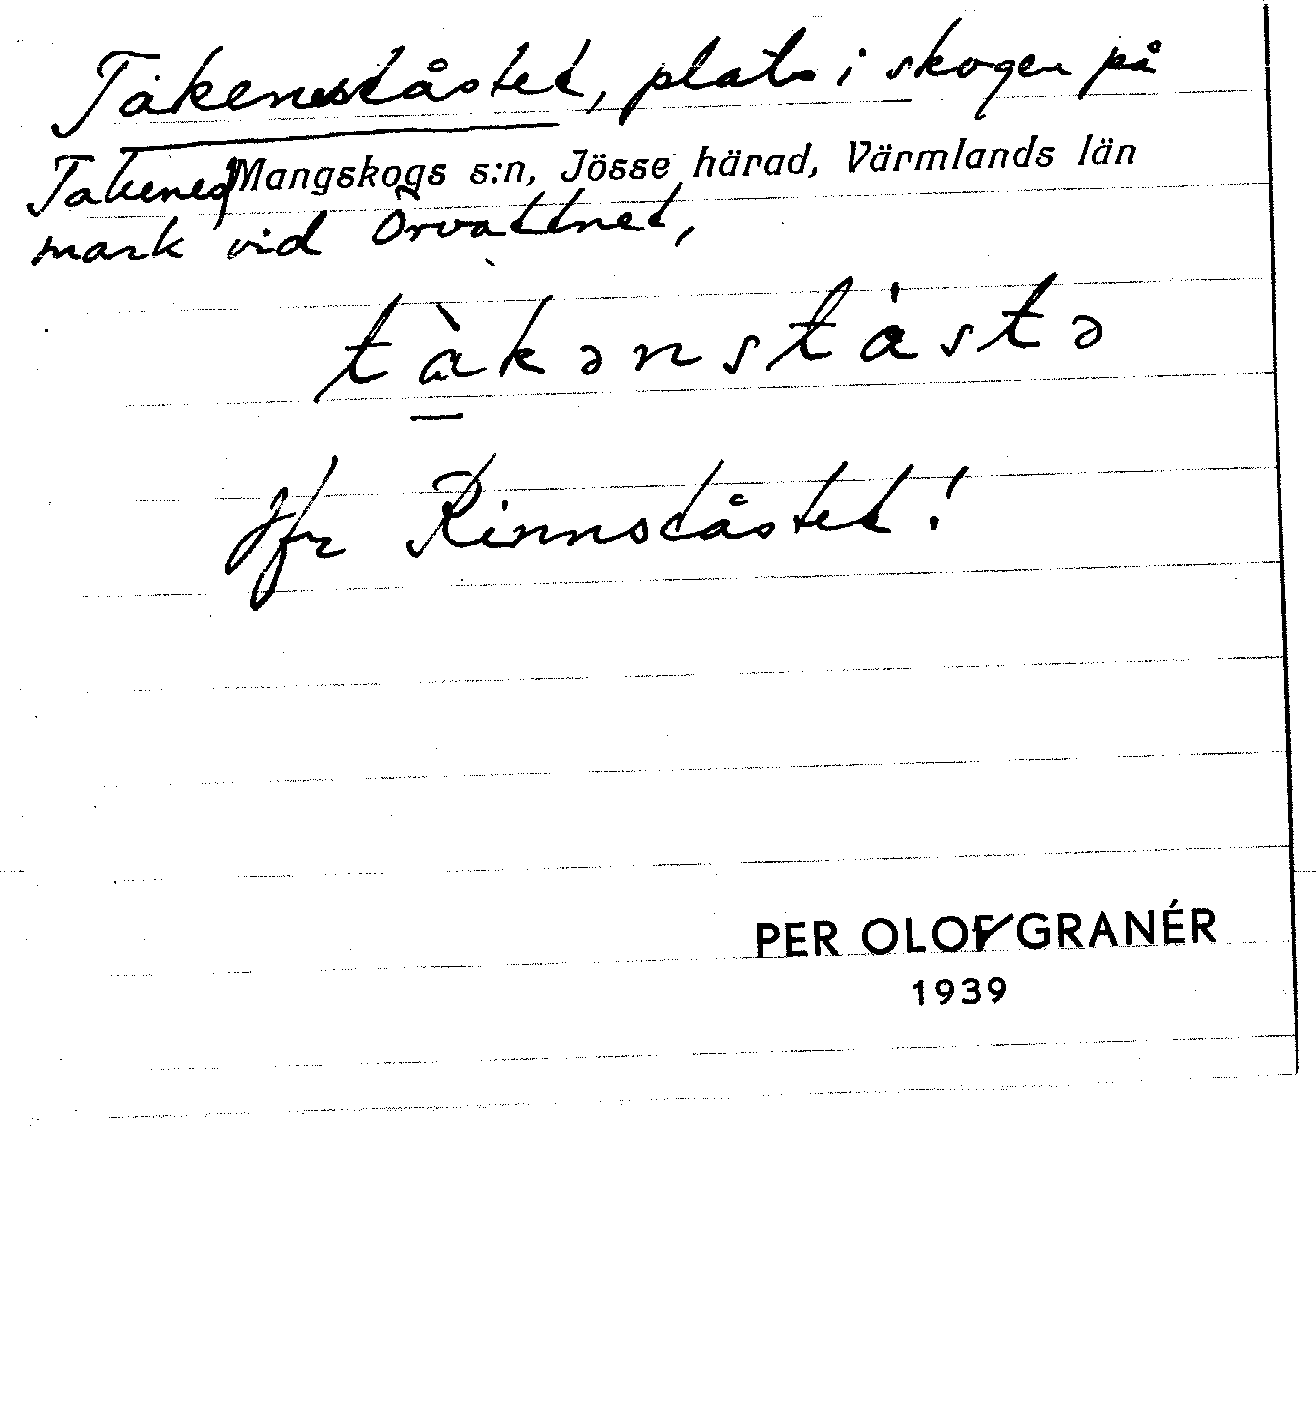 Takenestå​stet, plats i skogen på
Takenes Mangskogs s:n, Jösse härad, Värmlands län
mark vid Örvattnet,
tàkənståstə
Jfr Rinnståstet!
PER OLOF GRANÉR
1939